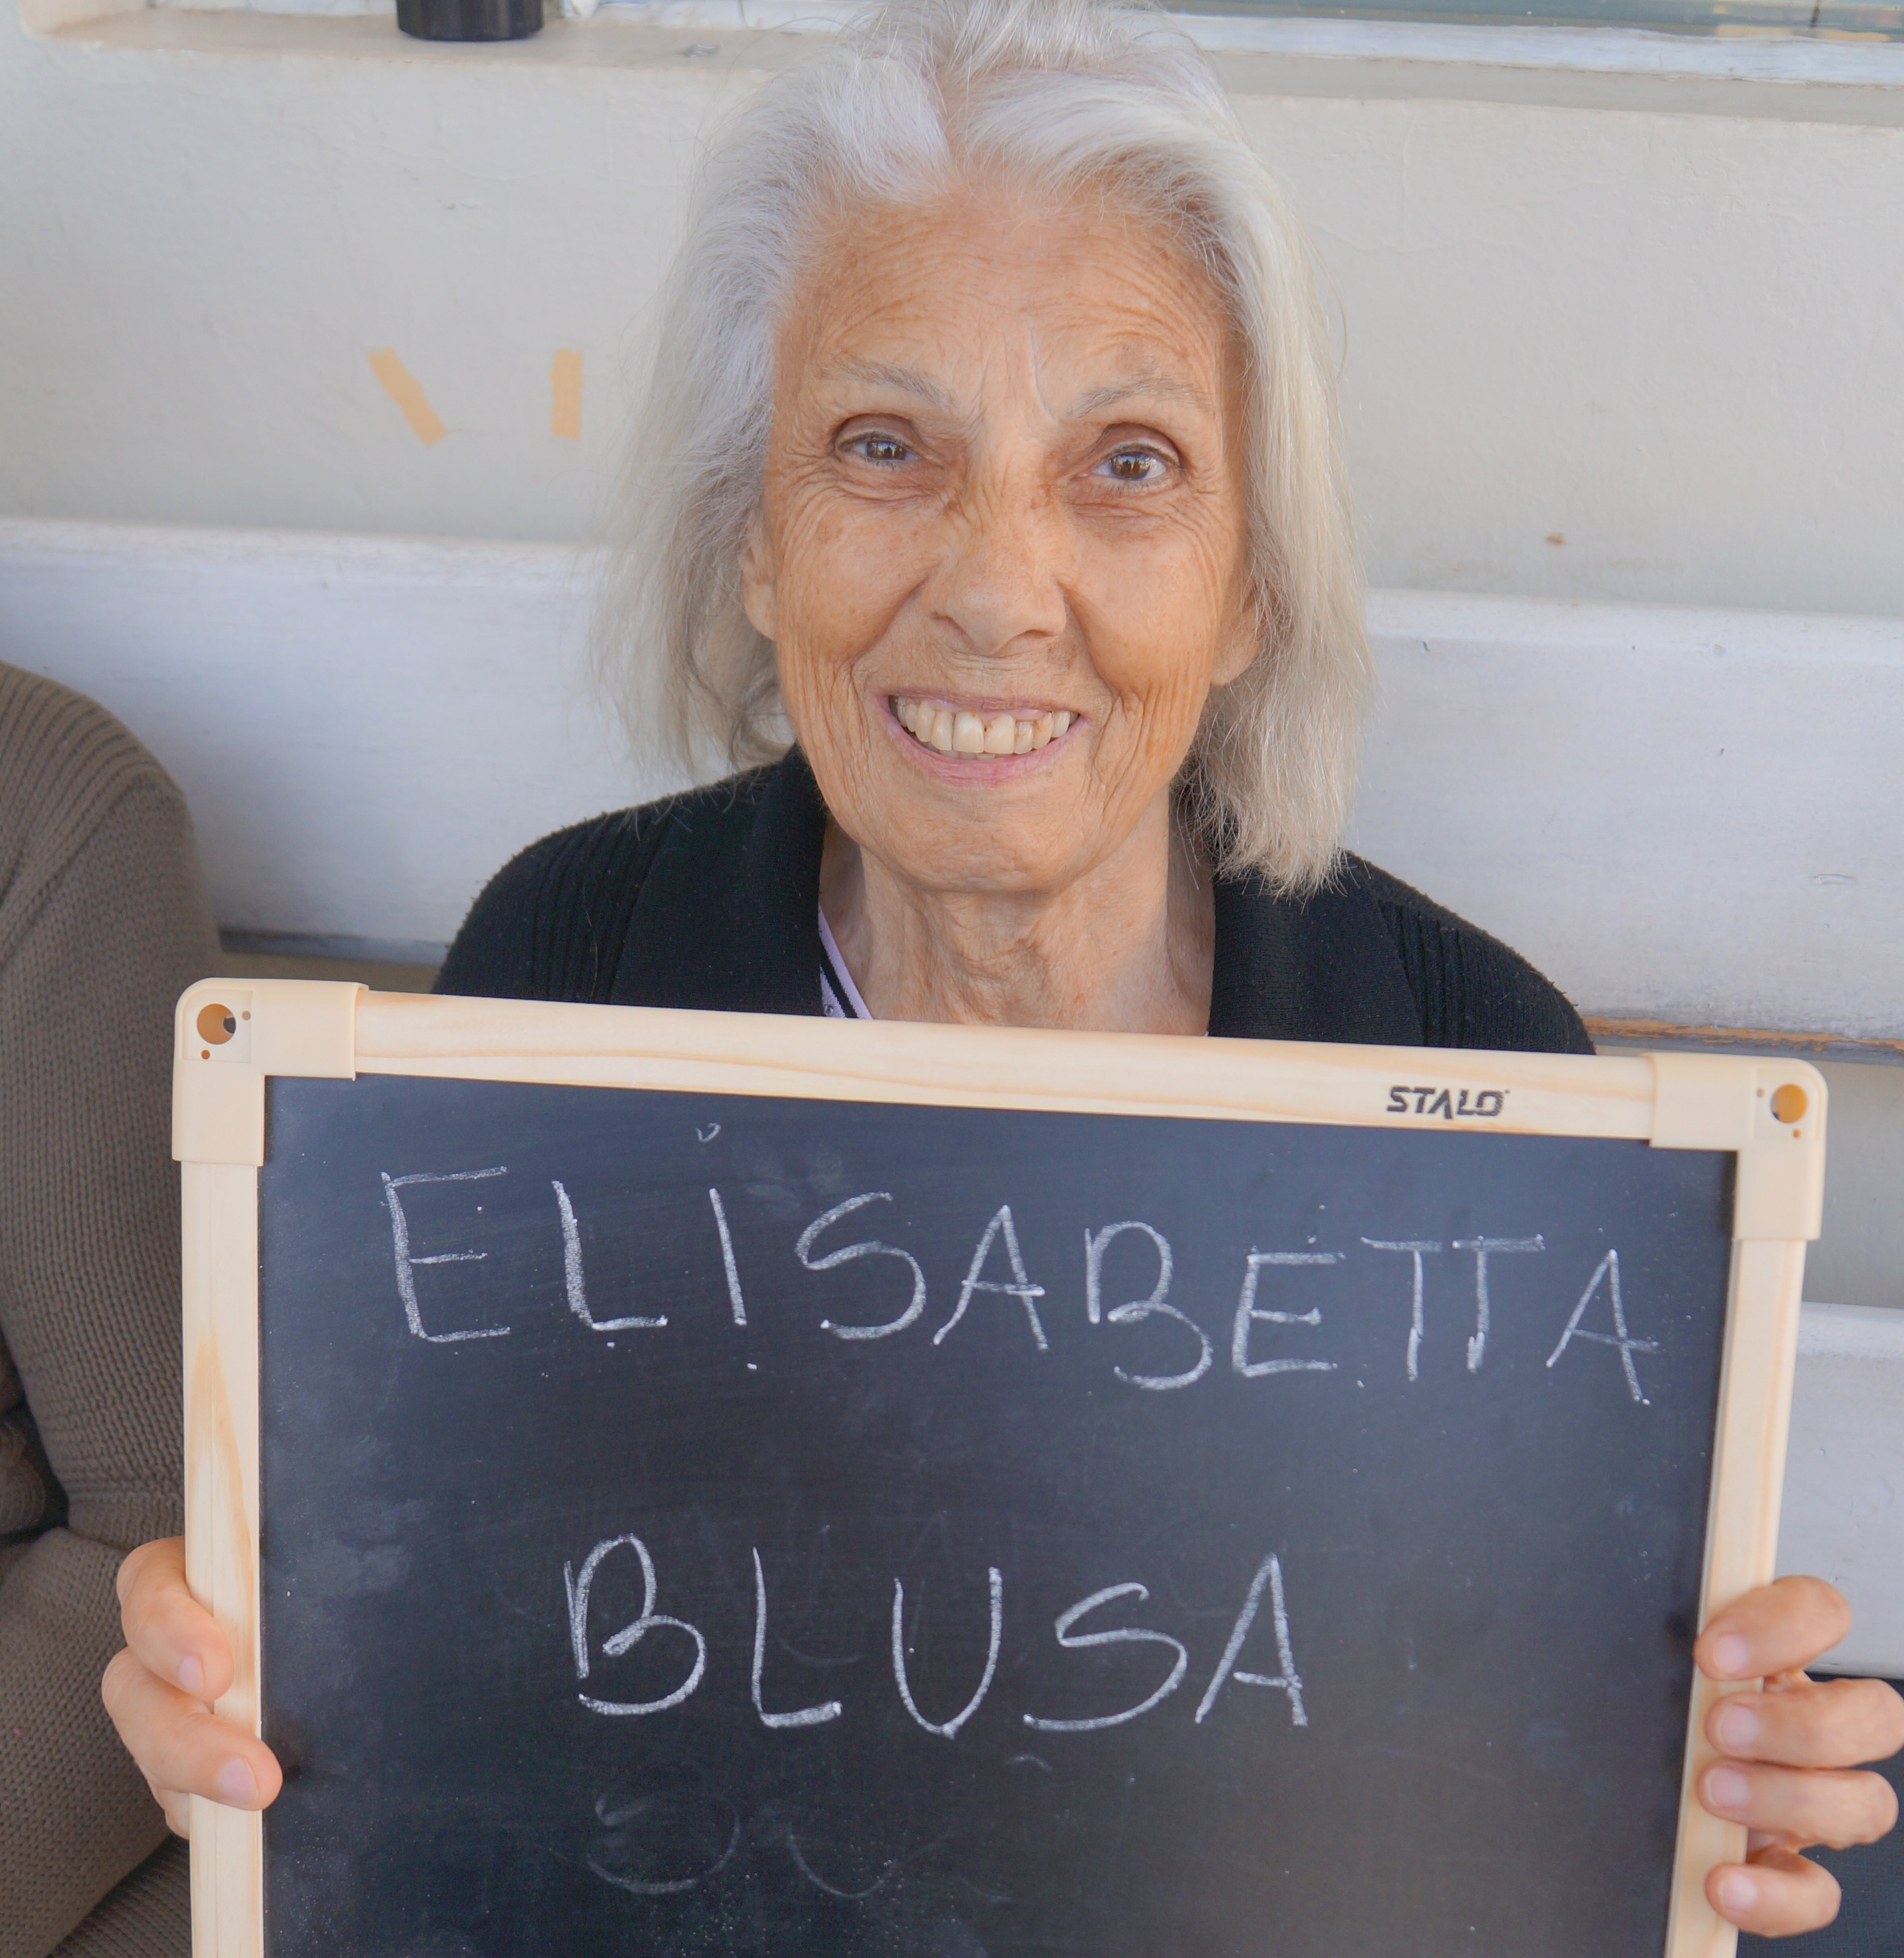 STALO
ELISABETTA
BLUSA